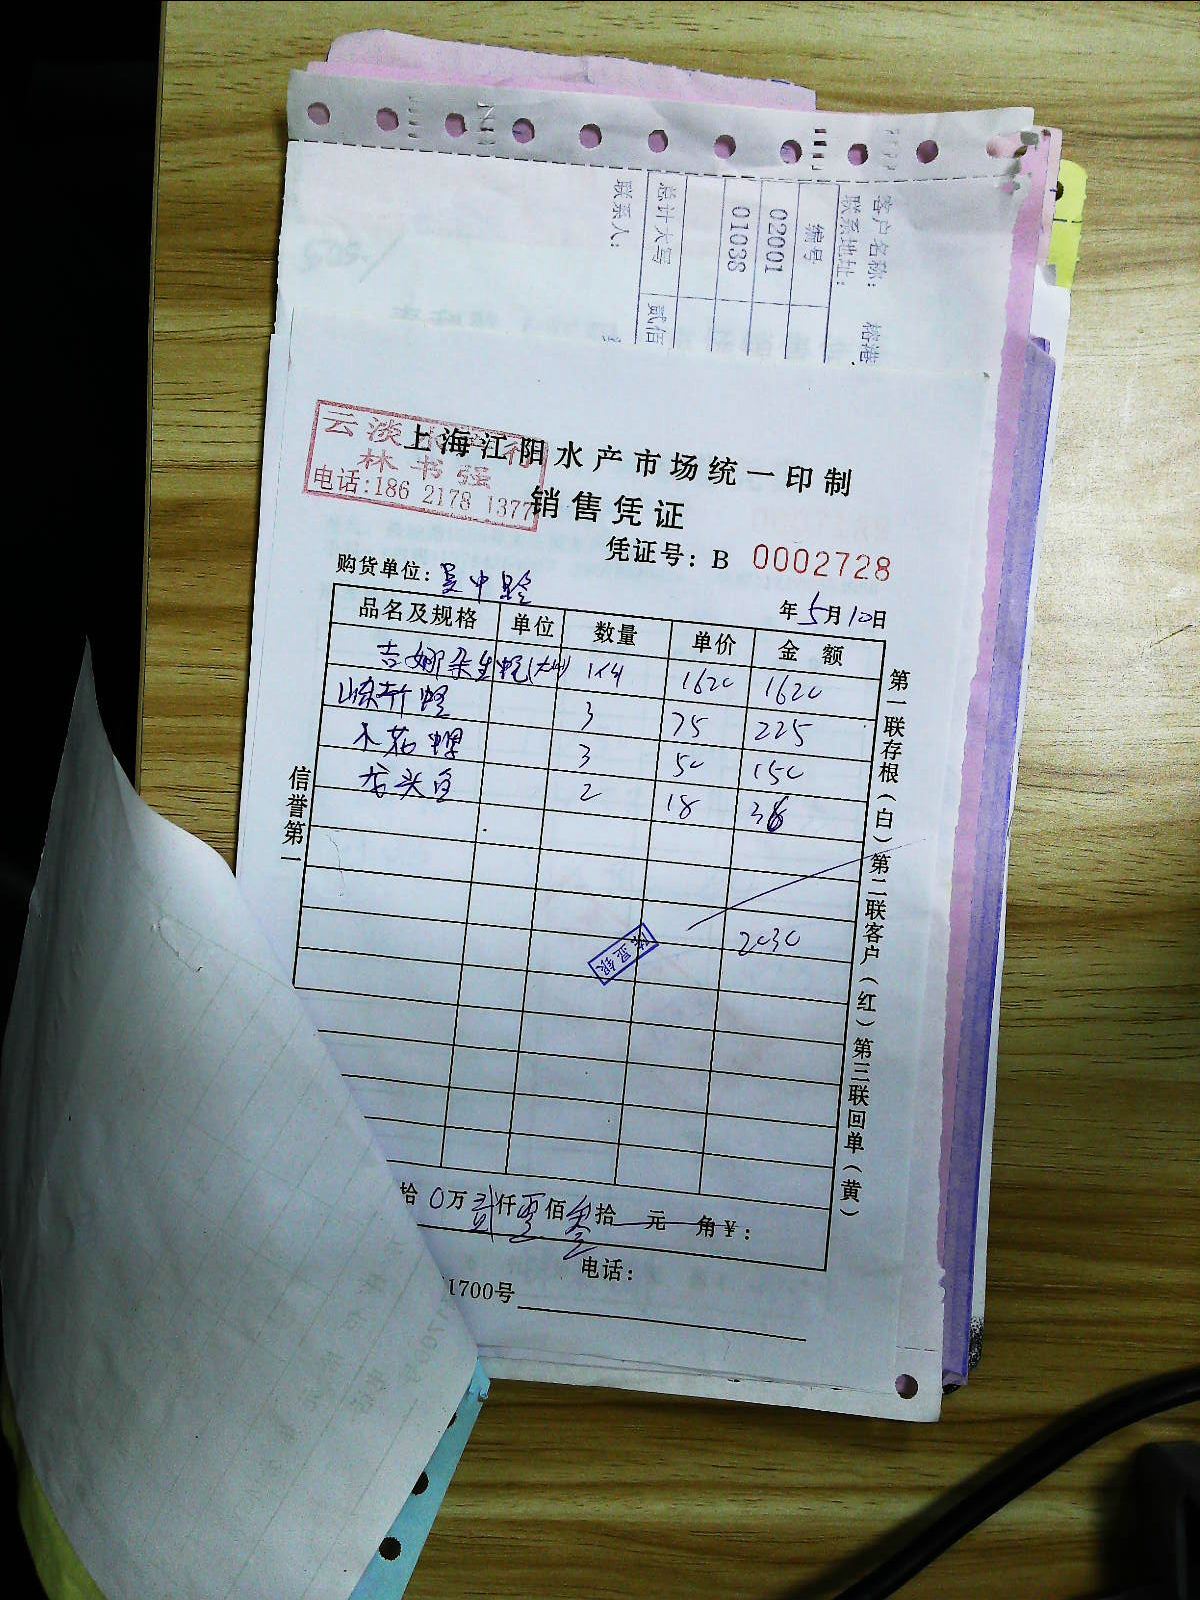 客户名称:
联系地址:
编号
02001
01038
总计大写
贰佰
联系人:
云淡水产行
林书强
电话:186 2178 1377
上海江阳水产市场统一印制
销售凭证
凭证号: B 0002728
购货单位:
年5月10日
品名及规格 单位 数量 单价 金额
吉娜朵生蚝(大) 1620 1620
3 75 225
3 50 150
龙头鱼 2 18 36
2030
拾0万贰仟零佰叁拾 元 角¥:
电话:
1700号
信誉第一
第一联存根(白)第二联客户(红)第三联回单(黄)